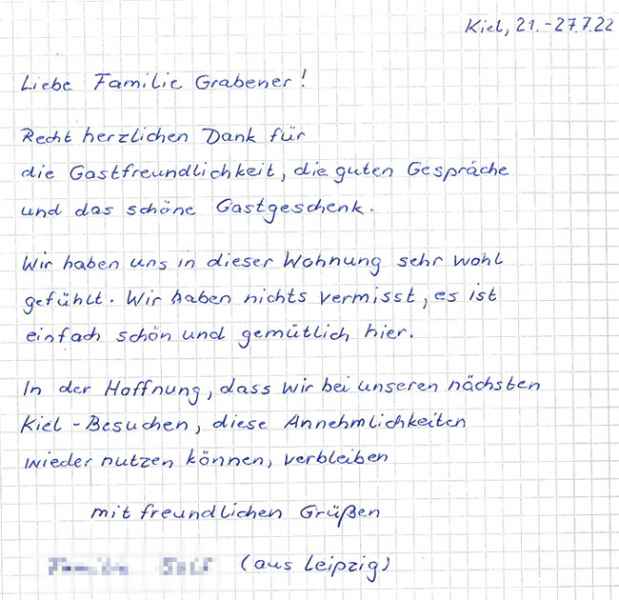 Kiel, 21.-27.7.22
Liebe Familie Grabener!
Recht herzlichen Dank für
die Gastfreundlichkeit, die guten Gespräche
und das schöne Gastgeschenk.
Wir haben uns in dieser Wohnung sehr wohl
gefühlt. Wir haben nichts vermisst, es ist
einfach schön und gemütlich hier.
In der Hoffnung, dass wir bei unseren nächsten
Kiel-Besuchen, diese Annehmlichkeiten
wieder nutzen können, verbleiben
mit freundlichen Grüßen
(aus Leipzig)